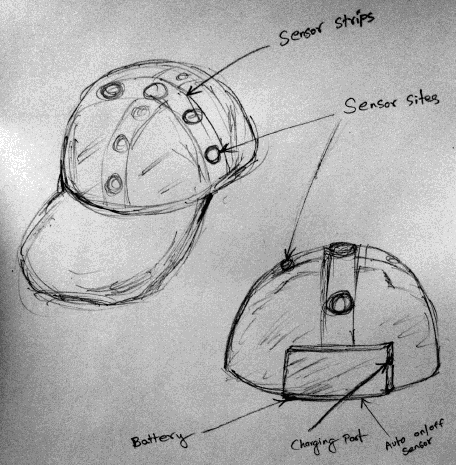 Sensor strips
Sensor sites
Battery
Charging Port
Auto on/off
Sensor